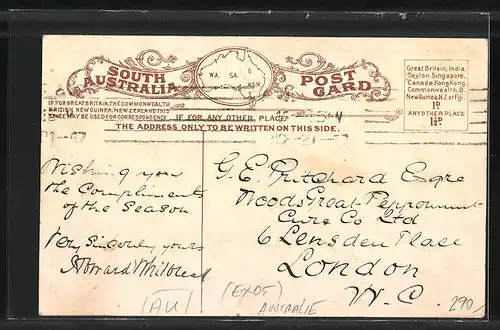 SOUTH AUSTRALIA
W.A. S.A. Q. NSW
POST CARD
Great Britain, India,
Ceylon, Singapore,
Canada, Hong Kong,
Commonwealth, B.
New Guinea, N.Z. or Fiji.
1D
ANY OTHER PLACE
1½D
IF FOR GREAT BRITAIN, THE COMMONWEALTH
BRITISH NEW GUINEA, NEW ZEALAND THIS
SPACE MAY BE USED FOR CORRESPONDENCE
IF FOR ANY OTHER PLACE
THE ADDRESS ONLY TO BE WRITTEN ON THIS SIDE.
Wishing you
the Compliments
of the Season
Very sincerely yours
G. E. Pritchard Esqre
Woods Great Peppermint
Cure Co Ltd
6 Place
London
W.C.
(AU)
(EXOT)
AUSTRALIE
290/